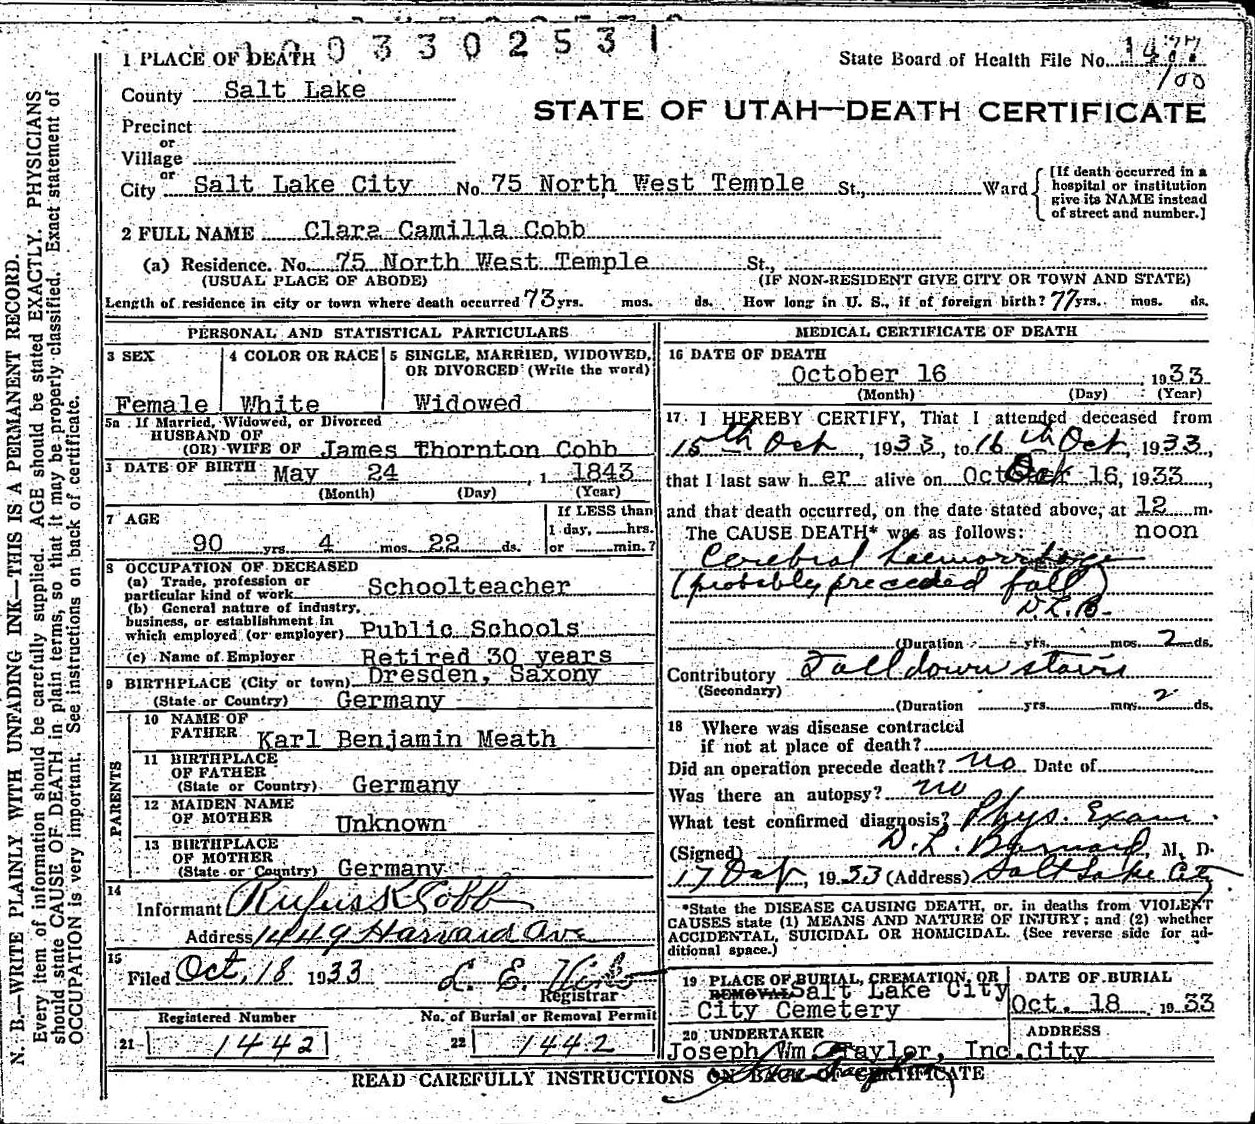 1003302531
1 PLACE OF DEATH
State Board of Health File No. 1477
100
County Salt Lake
STATE OF UTAH—DEATH CERTIFICATE
Precinct
or
Village
or
City Salt Lake City No. 75 North West Temple St., Ward
[If death occurred in a hospital or institution give its NAME instead of street and number.]
2 FULL NAME Clara Camilla Cobb
(a) Residence. No. 75 North West Temple St.,
(USUAL PLACE OF ABODE) (IF NON-RESIDENT GIVE CITY OR TOWN AND STATE)
Length of residence in city or town where death occurred 73 yrs. mos. ds. How long in U. S., if of foreign birth? 77 yrs. mos. ds.
PERSONAL AND STATISTICAL PARTICULARS
3 SEX 4 COLOR OR RACE 5 SINGLE, MARRIED, WIDOWED,
OR DIVORCED (Write the word)
Female White Widowed
5a If Married, Widowed, or Divorced
HUSBAND OF
(OR) WIFE OF James Thornton Cobb
DATE OF BIRTH May 24, 1 1843
(Month) (Day) (Year)
7 AGE
If LESS than
1 day, hrs.
or min.?
90 yrs. 4 mos. 22 ds.
8 OCCUPATION OF DECEASED
(a) Trade, profession or
particular kind of work Schoolteacher
(b) General nature of industry,
business, or establishment in
which employed (or employer) Public Schools
(c) Name of Employer Retired 30 years
9 BIRTHPLACE (City or town) Dresden, Saxony
(State or Country) Germany
PARENTS
10 NAME OF
FATHER Karl Benjamin Meath
11 BIRTHPLACE
OF FATHER
(State or Country) Germany
12 MAIDEN NAME
OF MOTHER Unknown
13 BIRTHPLACE
OF MOTHER
(State or Country) Germany
14
Informant Rufus K Cobb
Address 1449 Harvard Ave
15
Filed Oct, 18 1933 L. E.
Registrar
Registered Number No. of Burial or Removal Permit
21 1442 22 1442
MEDICAL CERTIFICATE OF DEATH
16 DATE OF DEATH
October 16, 1933
(Month) (Day) (Year)
17 I HEREBY CERTIFY, That I attended deceased from
15th Oct, 1933, to 16th Oct, 1933,
that I last saw h er alive on Oct 16, 1933,
and that death occurred, on the date stated above, at 12 m.
The CAUSE DEATH* was as follows: noon
Cerebral haemorrhage
(probably preceded fall)
D.L.B.
(Duration yrs. mos. 2 ds.
Contributory Fall down stairs
(Secondary)
(Duration yrs. mos. 2 ds.
18 Where was disease contracted
if not at place of death?
Did an operation precede death? no Date of
Was there an autopsy? no
What test confirmed diagnosis? Phys. Exam.
(Signed) D. L. Barnard, M. D.
17 Oct, 1933 (Address) Salt Lake City
*State the DISEASE CAUSING DEATH, or in deaths from VIOLENT
CAUSES state (1) MEANS AND NATURE OF INJURY; and (2) whether
ACCIDENTAL, SUICIDAL OR HOMICIDAL. (See reverse side for ad-
ditional space.)
19 PLACE OF BURIAL, CREMATION, OR DATE OF BURIAL
REMOVAL Salt Lake City
City Cemetery Oct. 18 1933
20 UNDERTAKER ADDRESS
Joseph Wm Taylor, Inc. City
READ CAREFULLY INSTRUCTIONS ON BACK OF CERTIFICATE
N. B.—WRITE PLAINLY WITH UNFADING INK—THIS IS A PERMANENT RECORD.
Every item of information should be carefully supplied. AGE should be stated EXACTLY. PHYSICIANS
should state CAUSE OF DEATH in plain terms, so that it may be properly classified. Exact statement of
OCCUPATION is very important. See instructions on back of certificate.